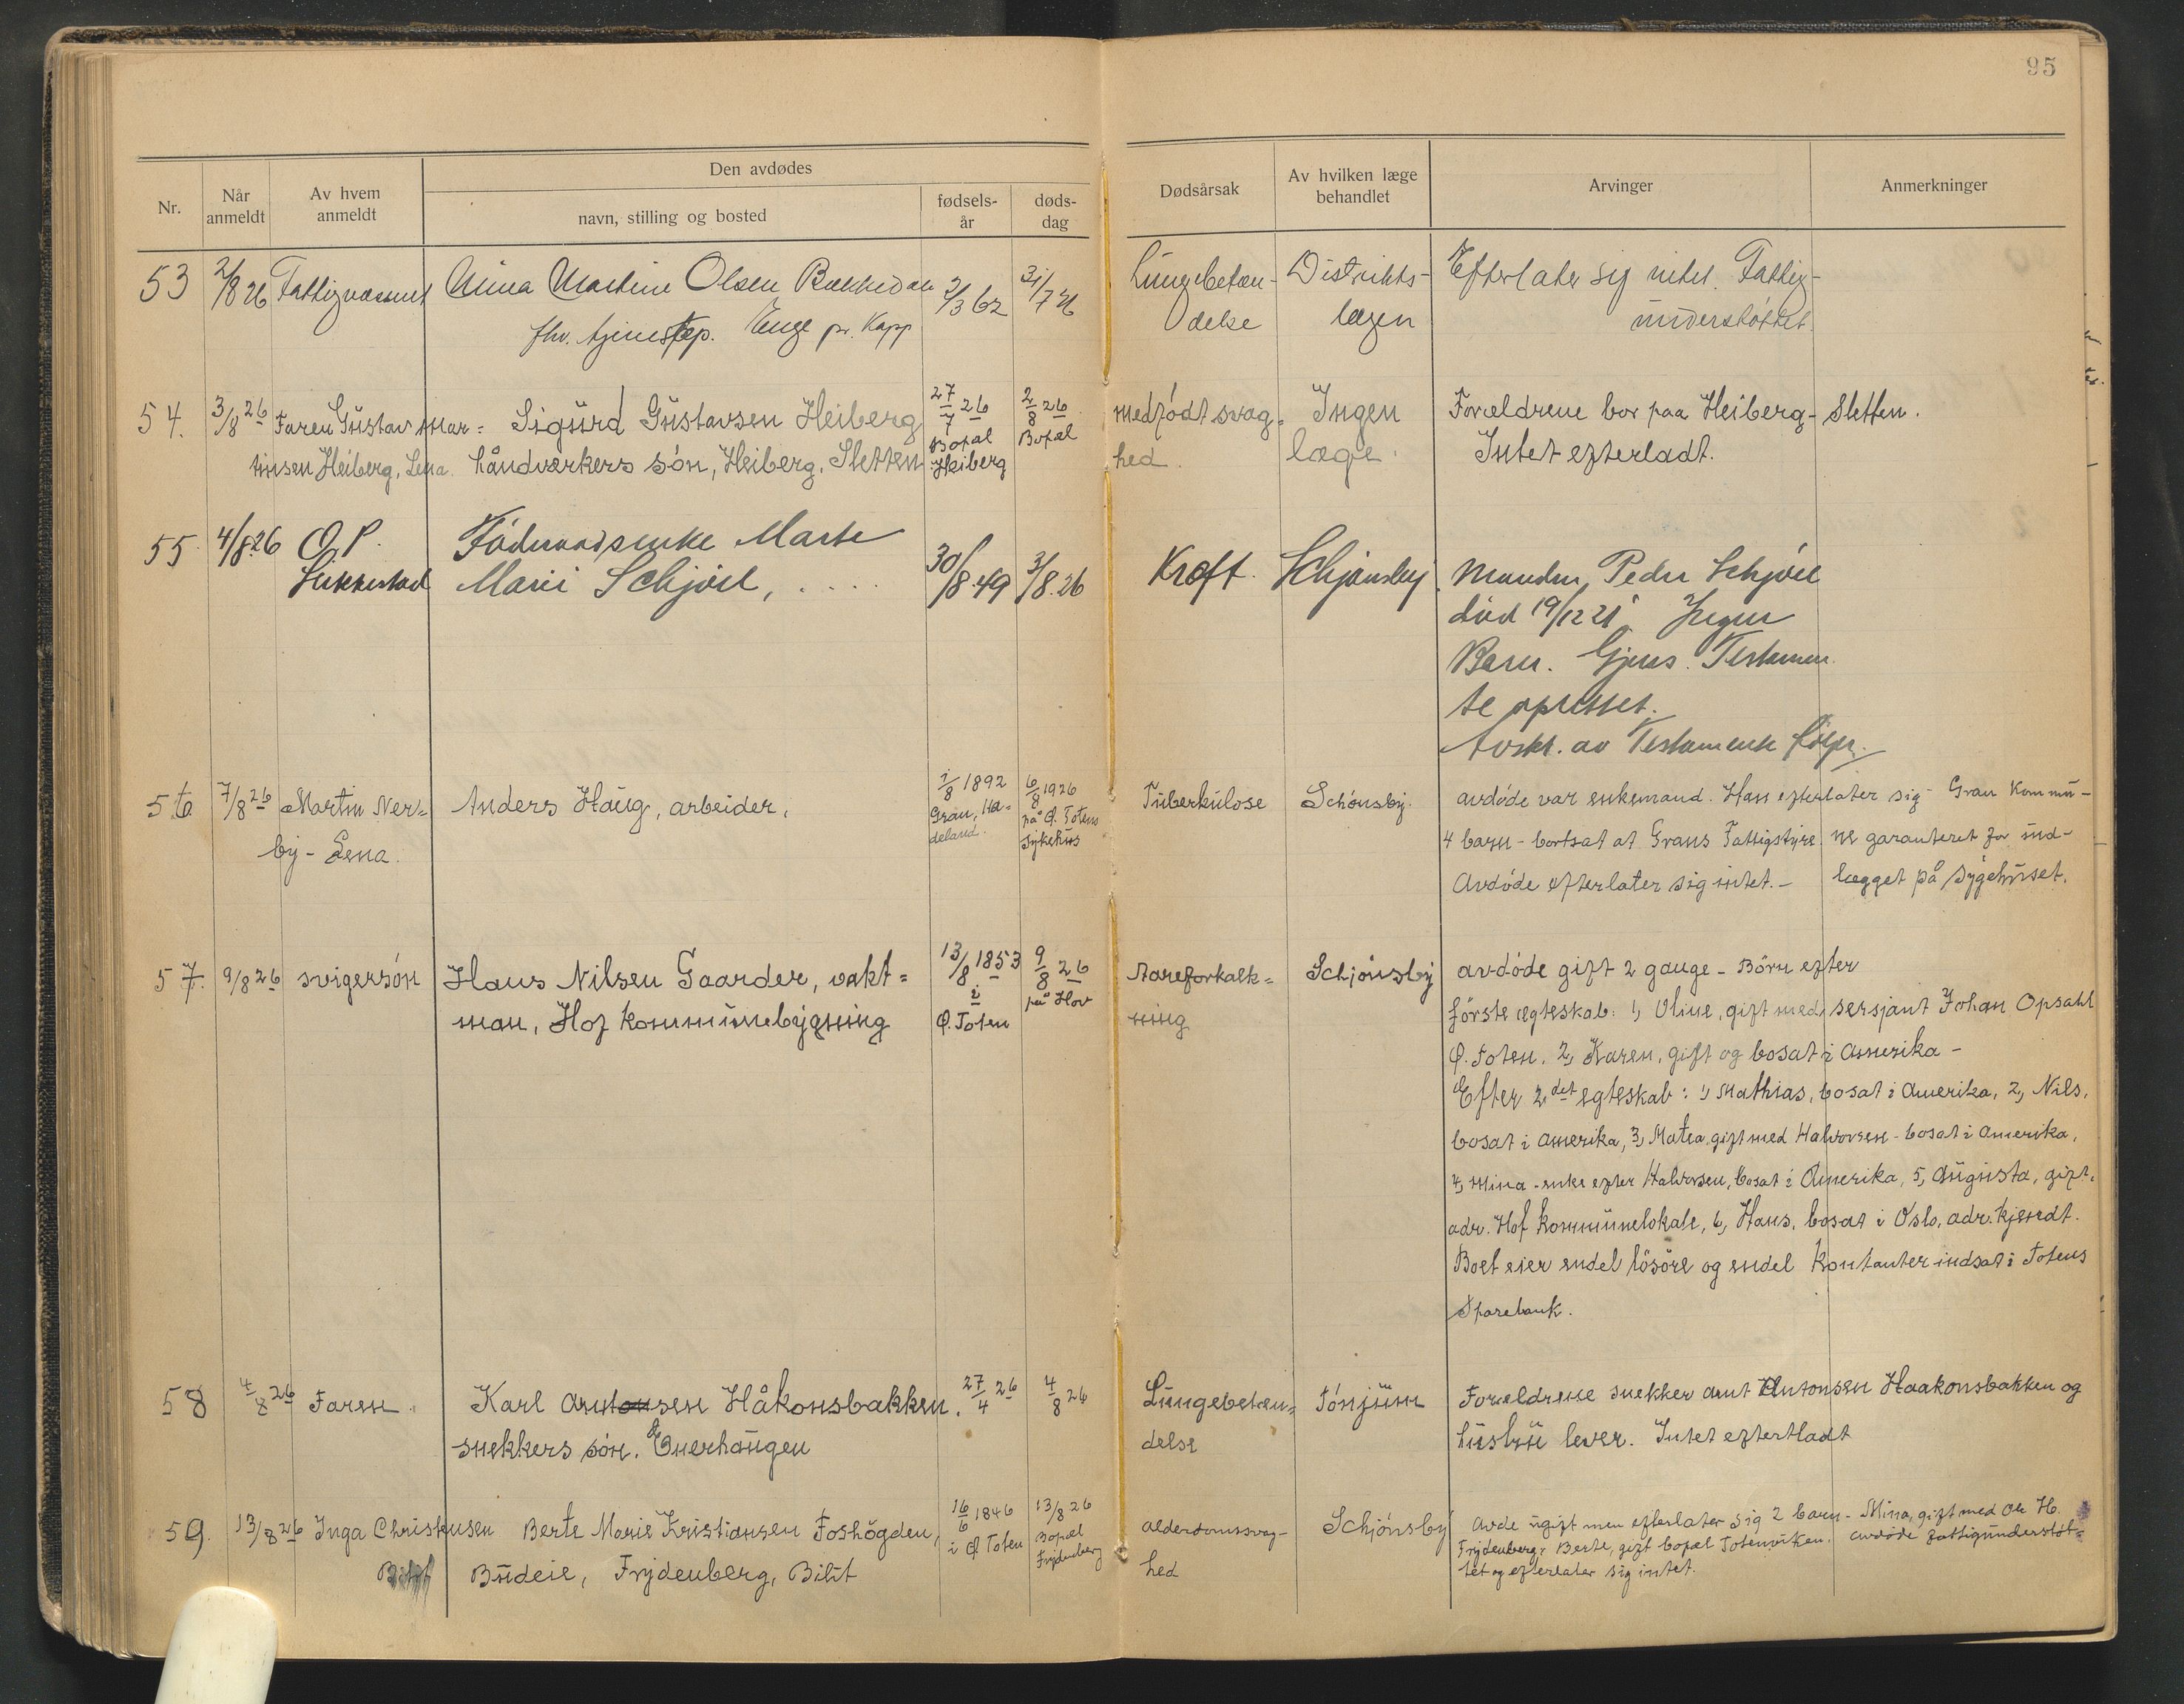 95
Nr.
Når anmeldt
Av hvem anmeldt
Den avdødes
navn, stilling og bosted
fødsels-år
døds-dag
Dødsårsak
Av hvilken læge behandlet
Arvinger
Anmerkninger
53 2/8 26 Fattigvæsenet Martine Olsen 2/3 62 31/7 26 Lungebetæn- Distrikts- Efterlater sig intet. Fattig-
fhv. pr. Kapp delse lægen understøttet.
54. 3/8 26 Faren Gustav Mar= Sigurd Gustavsen Heiberg 27/7 26 2/8 26 medfødt svag= Ingen Forældrene bor paa Heiberg- Sletten.
tinsen Heiberg, Lena. håndværkers søn, Heiberg, Sletten Bopæl Heiberg Bopæl hed. læge. Intet efterladt.
55. 4/8 26 O. P. Føderaadsenke Marte 30/8 49 3/8. 26 Kræft. Schjønsby Manden, Peder Schjöll
Sukkestad Marie Schjöll, . . . . död 19/12 21. Ingen
Barn. Gjens. Testamen-
te oprettet.
Avskr. av Testamente følger.
56. 7/8 26 Martin Ner= Anders Haug, arbeider. 1/8 1892 6/8 1926 Tuberkulose Schönsby. avdöde var enkemand. Han efterlater sig Gran Kommu-
by - Lena. Gran, Ha-deland. på Ø. Totens Sykehus 4 barn - bortsat at Grans Fattigstyre. ne garanteret for ind-
Avdöde efterlater sig intet. - lægget på Sygehuset.
57. 9/8 26 svigersön Hans Nilsen Gaarder, vakt= 13/8 1853 9/8 26 Aareforkalk= Schjönsby avdöde gift 2 gange - Börn efter
man, Hof kommunebygning i Ø. Toten på Hov ning förste ægteskab: 1, Oline, gift med sersjant Johan Opsahl
Ø. Toten. 2, Karen, gift og bosat i Amerika -
Efter 2det egteskab: 1, Mathias, bosat i Amerika, 2, Nils,
bosat i Amerika, 3, Matea, gift med Halvorsen - bosat i Amerika,
4, Mina - enke efter Halvorsen, bosat i Amerika, 5, Augusta, gift.
adr. Hof kommunelokale, 6, Hans, bosat i Oslo, adr. kjendt.
Boet eier endel lösöre og endel Kontanter indsat i Totens
Sparebank.
58 4/8 26 Faren. Karl Arntsen Håkonsbakken. 27/4 26 4/8 26 Lungebetæn= Tönjum Forældrene snekker Arnt Antonsen Haakonsbakken og
snekkers sön. Enerhaugen delse hustru lever. Intet eftertladt
59. 13/8 26 Inga Christensen Berte Marie Kristiansen Foshögden, 16/6 1846 13/8 26 alderdomssvag- Schjönsby Avde ugift men efterlater sig 2 barn - Mina, gift med Ole H.
Bilit Budeie, Frydenberg, Bilit i Ø. Toten Bopæl Frydenberg hed Frydenberg, Berte, gift bopæl Totenviken. avdöde fattigunderstöt=
tet og efterlater sig intet.